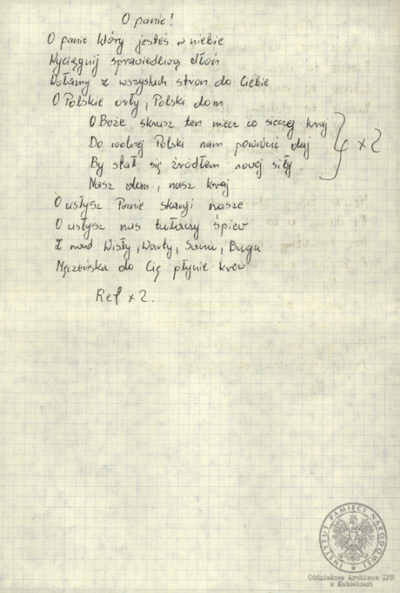 O panie!
O panie który jesteś w niebie
Wyciągnij sprawiedliwą dłoń
Wołamy z wszystkich stron do Ciebie
O Polskie orły, Polski dom
O Boże skrusz ten miecz co siecze kraj
Do wolnej Polski nam powrócić daj
By stał się źródłem nowej siły
Nasz dom, nasz kraj
x 2
O usłysz Panie skargi nasze
O usłysz nas tułaczy śpiew
Z nad Wisły, Warty, Sanu, Bugu
Męczeńska do Cię płynie krew
Ref x 2.
INSTYTUT PAMIĘCI NARODOWEJ
Oddziałowe Archiwum IPN
w Katowicach